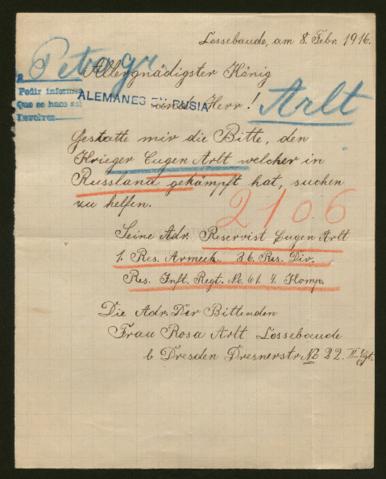 Cossebaude, am 8. Febr. 1916.
Petrogr
Allergnädigster König
Pedir informes
Que se haga sa
Devolver
ALEMANES EN RUSIA
und Herr!
Arlt
Gestatte mir die Bitte, den
Krieger Eugen Arlt welcher in
Russland gekämpft hat, suchen
zu helfen.
2106
Seine Adr. Reservist Eugen Arlt
1. Res. Armeek. 36. Res. Div.
Res. Inft. Regt. No. 61. 4. Komp.
Die Adr. Der Bittenden
Frau Rosa Arlt Cossebaude
b Dresden Dresnerstr No 22 II